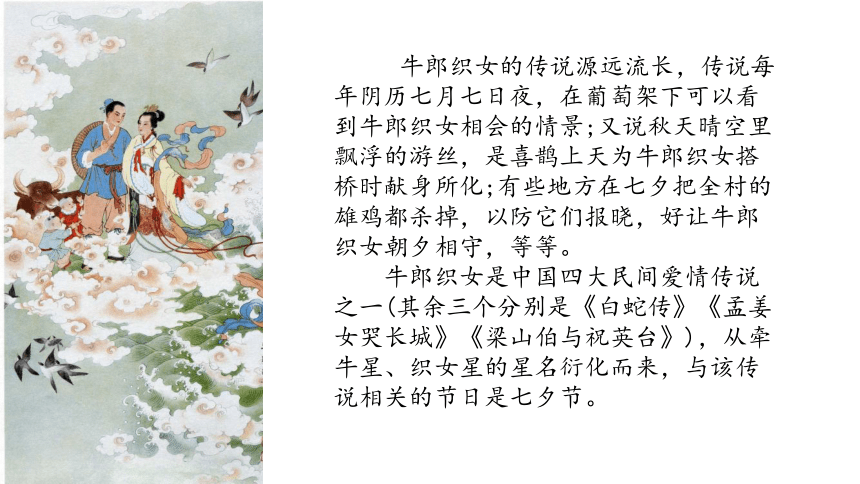 牛郎织女的传说源远流长，传说每
年阴历七月七日夜，在葡萄架下可以看
到牛郎织女相会的情景;又说秋天晴空里
飘浮的游丝，是喜鹊上天为牛郎织女搭
桥时献身所化;有些地方在七夕把全村的
雄鸡都杀掉，以防它们报晓，好让牛郎
织女朝夕相守，等等。
牛郎织女是中国四大民间爱情传说
之一(其余三个分别是《白蛇传》《孟姜
女哭长城》《梁山伯与祝英台》)，从牵
牛星、织女星的星名衍化而来，与该传
说相关的节日是七夕节。